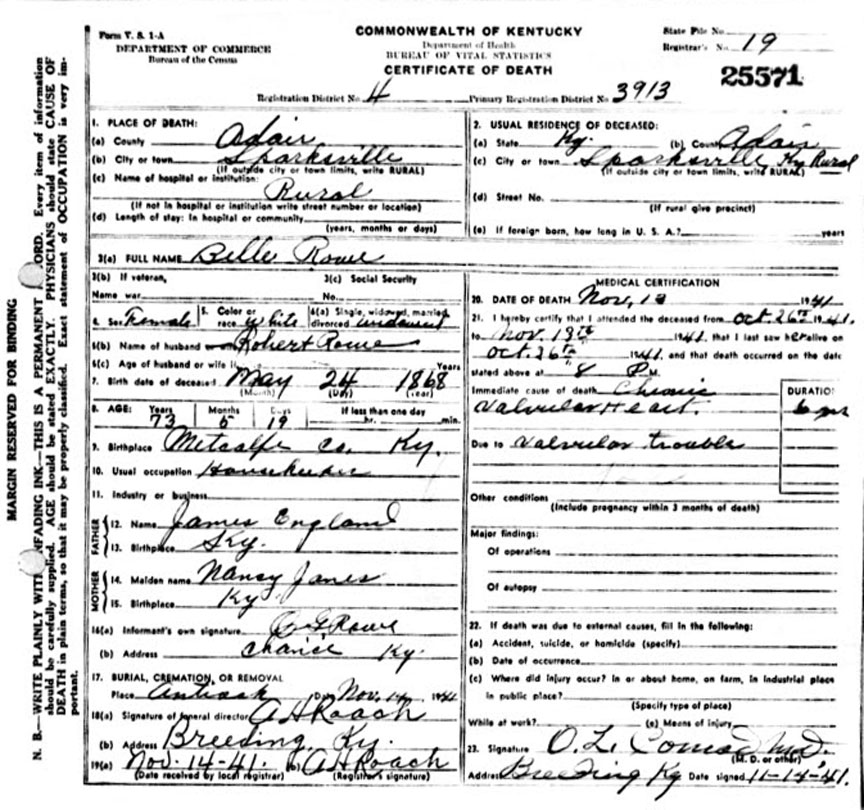 Form V. S. 1-A
DEPARTMENT OF COMMERCE
Bureau of the Census
COMMONWEALTH OF KENTUCKY
Department of Health
BUREAU OF VITAL STATISTICS
CERTIFICATE OF DEATH
State File No.
Registrar's No. 19
25571
Registration District No. 4 Primary Registration District No. 3913
1. PLACE OF DEATH:
(a) County Adair
(b) City or town Sparksville
(If outside city or town limits, write RURAL)
(c) Name of hospital or institution:
Rural
(If not in hospital or institution write street number or location)
(d) Length of stay: In hospital or community
(years, months or days)
2. USUAL RESIDENCE OF DECEASED:
(a) State Ky. (b) County Adair
(c) City or town Sparksville Ky Rural
(If outside city or town limits, write RURAL)
(d) Street No.
(If rural give precinct)
(e) If foreign born, how long in U. S. A.? years
3(a) FULL NAME Belle Rowe
3(b) If veteran, 3(c) Social Security
Name war No.
4. Sex Female 5. Color or race White 6(a) Single, widowed, married, divorced widowed
6(b) Name of husband or wife Robert Rowe
6(c) Age of husband or wife if Years
7. Birth date of deceased May 24 1868
(Month) (Day) (Year)
8. AGE: Years Months Days If less than one day
73 5 19 hr. min.
9. Birthplace Metcalfe Co. Ky.
10. Usual occupation Housekeeper
11. Industry or business
FATHER
12. Name James England
13. Birthplace Ky.
MOTHER
14. Maiden name Nancy Janes
15. Birthplace Ky
16(a) Informant's own signature Rowe
(b) Address Chance Ky.
17. BURIAL, CREMATION, OR REMOVAL
Place Antioch Date Nov. 14 1941
18(a) Signature of funeral director A H Roach
(b) Address Breeding, Ky.
19(a) Nov. 14-41. (b) A H Roach
(Date received by local registrar) (Registrar's signature)
MEDICAL CERTIFICATION
20. DATE OF DEATH Nov. 13 1941
21. I hereby certify that I attended the deceased from Oct. 26th 1941.
to Nov. 13th 1941, that I last saw her alive on
Oct 26th 1941, and that death occurred on the date
stated above at 8 P M
Immediate cause of death Chronic
Valvular Heart.
DURATION
6 yrs
Due to Valvular trouble
Other conditions
(Include pregnancy within 3 months of death)
Major findings:
Of operations
Of autopsy
22. If death was due to external causes, fill in the following:
(a) Accident, suicide, or homicide (specify)
(b) Date of occurrence
(c) Where did injury occur? In or about home, on farm, in industrial place
in public place?
(Specify type of place)
While at work? (e) Means of injury
23. Signature O. L. Conrad M.D.
(M. D. or other)
Address Breeding Ky Date signed 11-14-41.
MARGIN RESERVED FOR BINDING
N. B.—WRITE PLAINLY WITH UNFADING INK—THIS IS A PERMANENT RECORD. Every item of information
should be carefully supplied. AGE should be stated EXACTLY. PHYSICIANS should state CAUSE OF
DEATH in plain terms, so that it may be properly classified. Exact statement of OCCUPATION is very im-
portant.